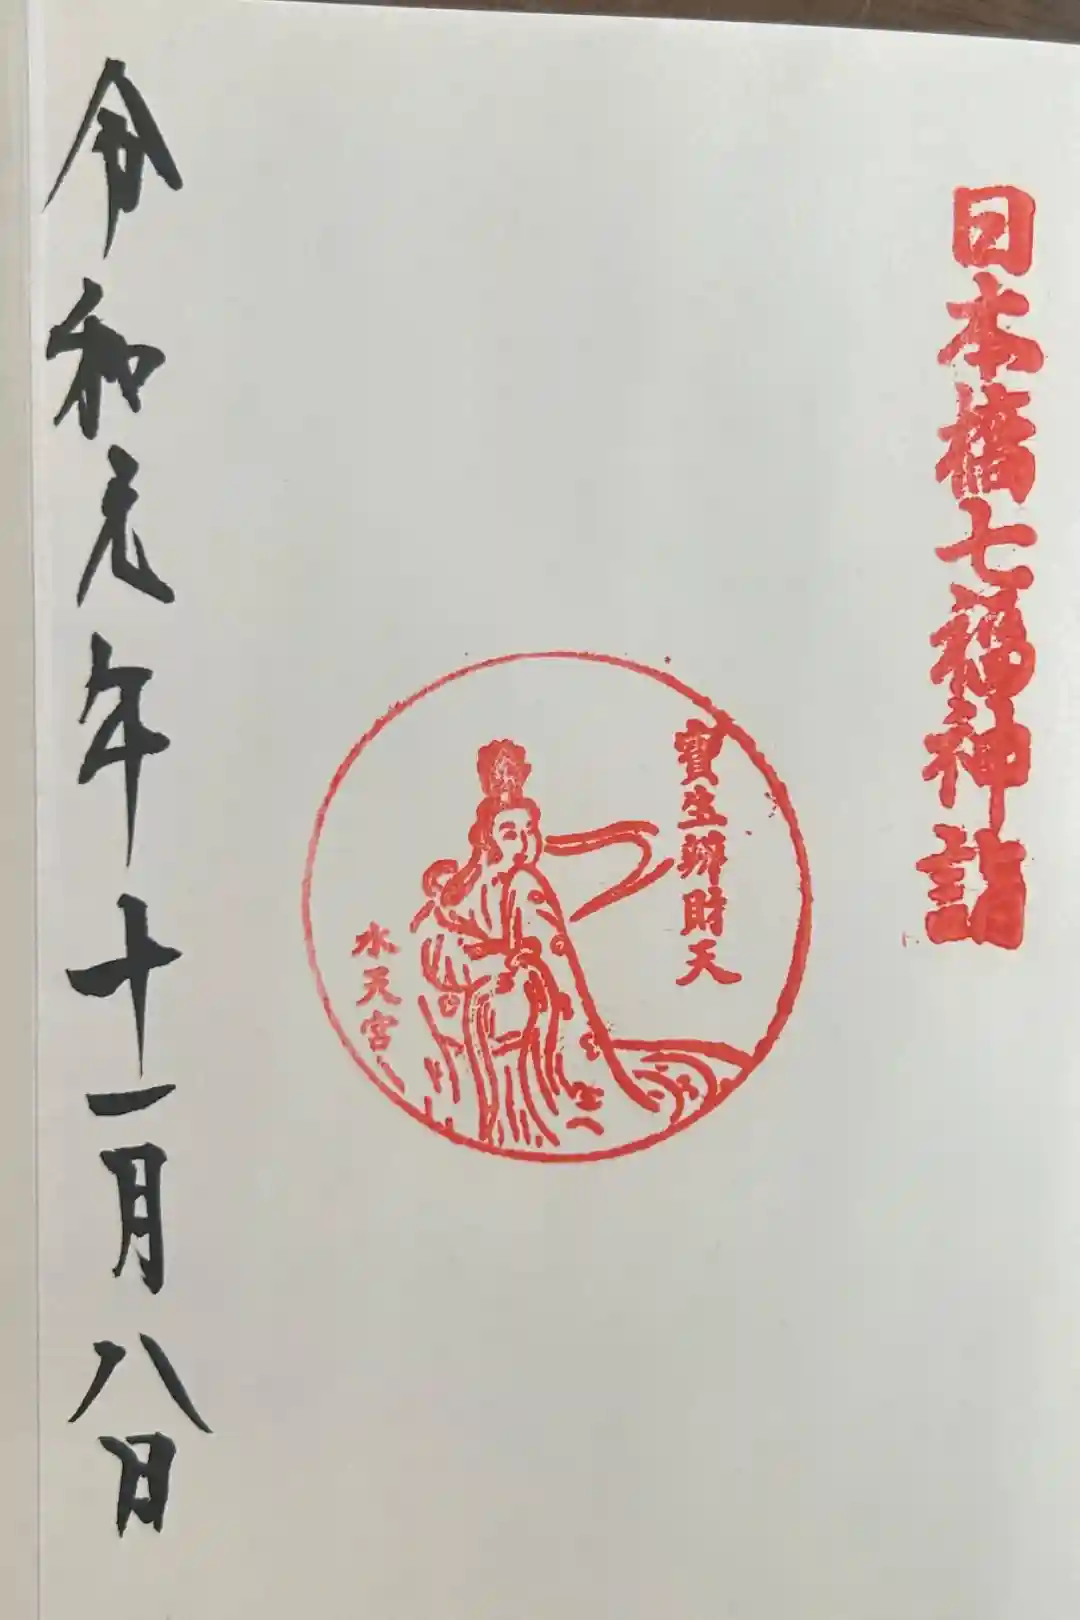 日本橋七福神詣
寳生辨財天
水天宮
令和元年十一月八日